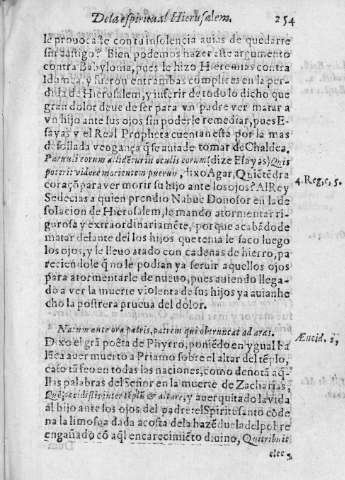 De la espiritual Hierusalem. 254
le prouocasse con tu insolencia auias de quedarte
sin castigo? Bien podemos hazer este argumento
contra Babylonia, pues le hizo Hieremias contra
Idumea, y fueron entrambas complices en la per-
dida de Hierusalem, y inferir de todo lo dicho que
gran dolor deue de ser para vn padre ver matar a
vn hijo ante sus ojos sin poderle remediar, pues E-
sayas y el Real Propheta cuentan esta por la mas
desollada vengança q̃ se auia de tomar de Chaldea.
Paruuli eorum allidentur in oculis eorum (dize Esayas) Quis
poterit videre morientem puerum, dixo Agar, Quiẽ tẽdra
coraçõ para ver morir su hijo ante los ojos? Al Rey
4. Reg. c. 5.
Sedecias a quien prendio Nabuc Donosor en la de
solacion de Hierusalem, le mando atormentar ri-
gurosa y extraordinariamẽte, porque acabãdo de
matar delante del los hijos que tenia le saco luego
los ojos, y le lleuo atado con cadenas de hierro, pa
reciendole q̃ no le podian ya seruir aquellos ojos
para atormentarle de nueuo, pues auiendo llega-
do a ver la muerte violenta de sus hijos ya auian he
cho la postrera prueua del dolor.
Natum ante ora patris, patrem qui obtruncat ad aras.
Æneid. 2,
Dixo el grã poëta de Phyrro, poniẽdo en ygual ba
lãça auer muerto a Priamo sobre el altar del tẽplo,
cato tã feo en todas las naciones, como denotã aq̃-
llas palabras del Señor en la muerte de Zacharias,
Quẽ occidistis inter tẽplũ & altare, y auer quitado la vida
al hijo ante los ojos del padre. el Spiritu santo cõde
na la limosna dada acosta dela hazẽduela del pobre
engañado cõ aq̃l encarecimiẽto diuino, Qui tribuit
elee-